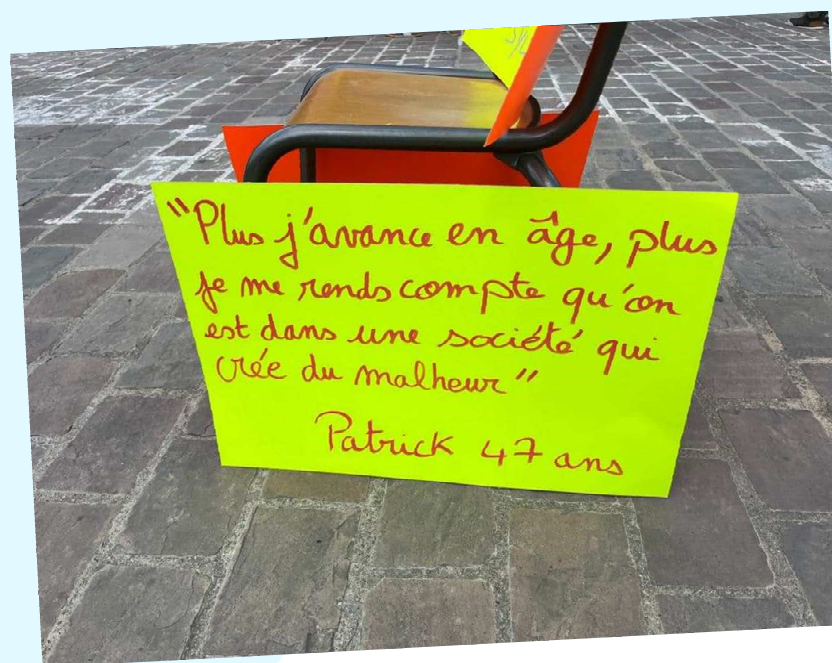 "Plus j'avance en âge, plus
je me rends compte qu'on
est dans une société qui
crée du malheur"
Patrick 47 ans